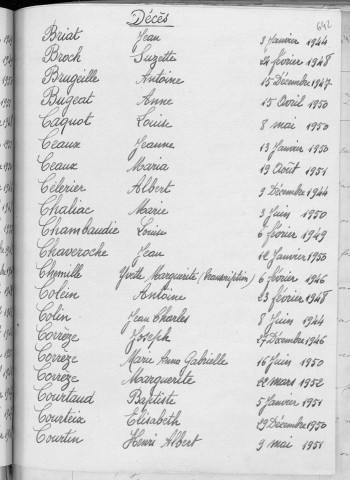 Décès
642
Briat Jean 3 Janvier 1944
Broch Suzette 24 février 1948
Brugeille Antoine 15 Décembre 1947
Bugeat Anne 15 Avril 1950
Caquot Louise 8 mai 1950
Ceaux Jeanne 13 Janvier 1950
Ceaux Maria 19 Août 1951
Célerier Albert 9 Décembre 1944
Chaliac Marie 3 Juin 1950
Chambaudie Louise 6 février 1949
Chaveroche Jean 12 Janvier 1950
Chemille Yvette Marguerite (transcription) 6 février 1946
Colein Antoine 23 février 1948
Colin Jean Charles 8 Juin 1944
Corrèze Joseph 27 Décembre 1946
Corrèze Marie Anna Gabrielle 16 Juin 1950
Corrèze Marguerite 12 mars 1952
Courtaud Baptiste 5 Janvier 1951
Courteix Elisabeth 29 Décembre 1950
Courtin Henri Albert 9 mai 1951